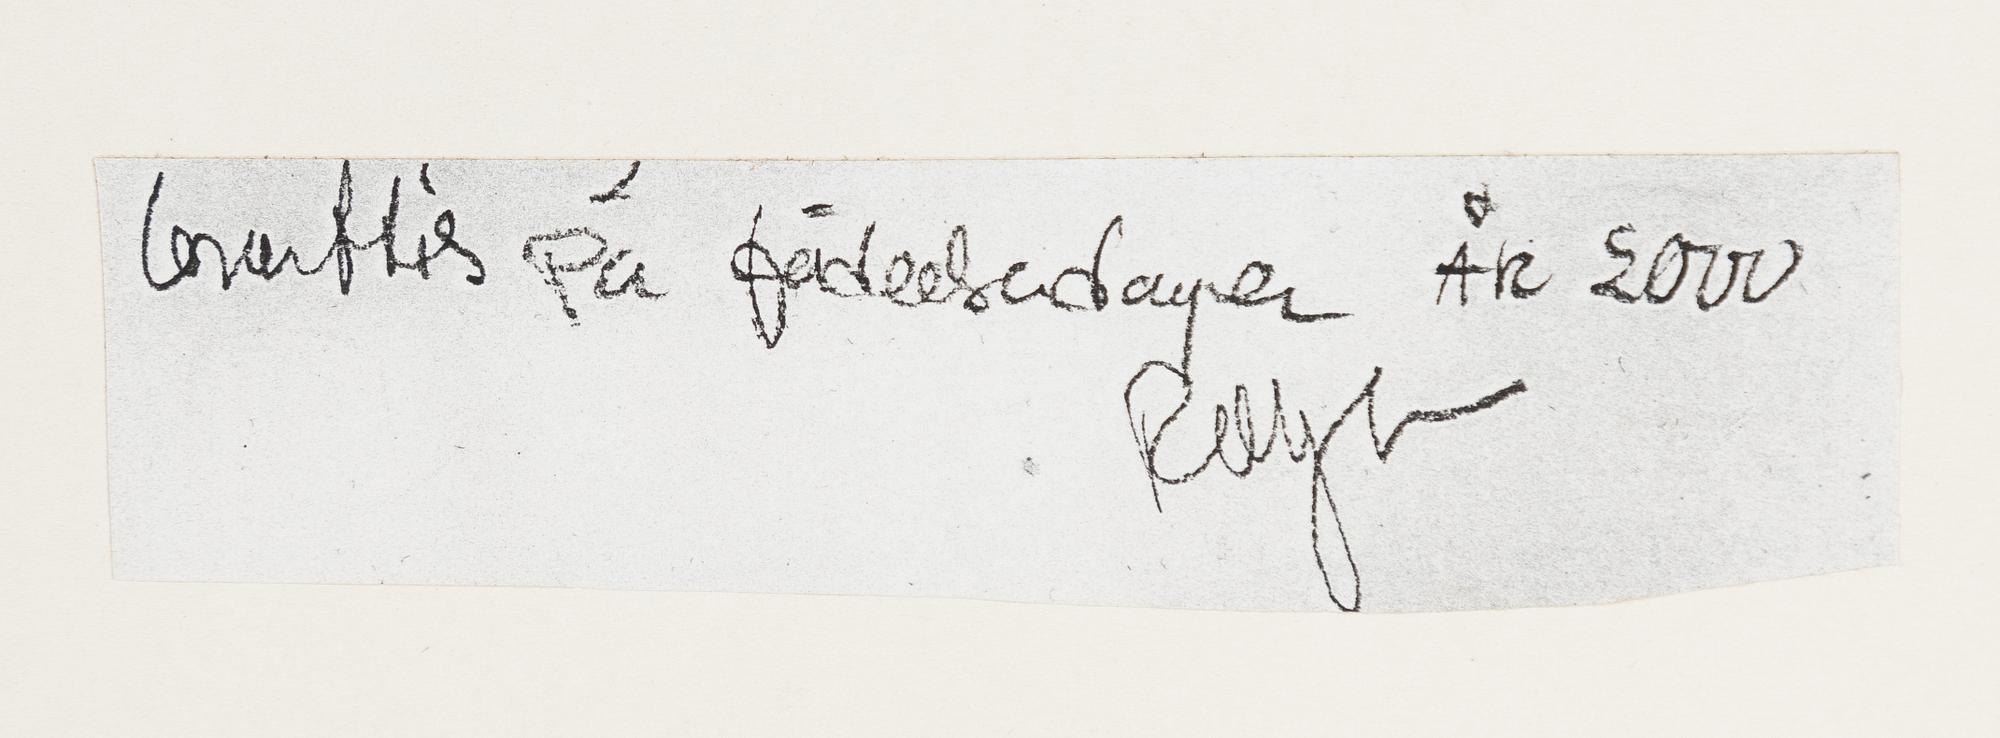 Grattis På födelsedagen År 2000